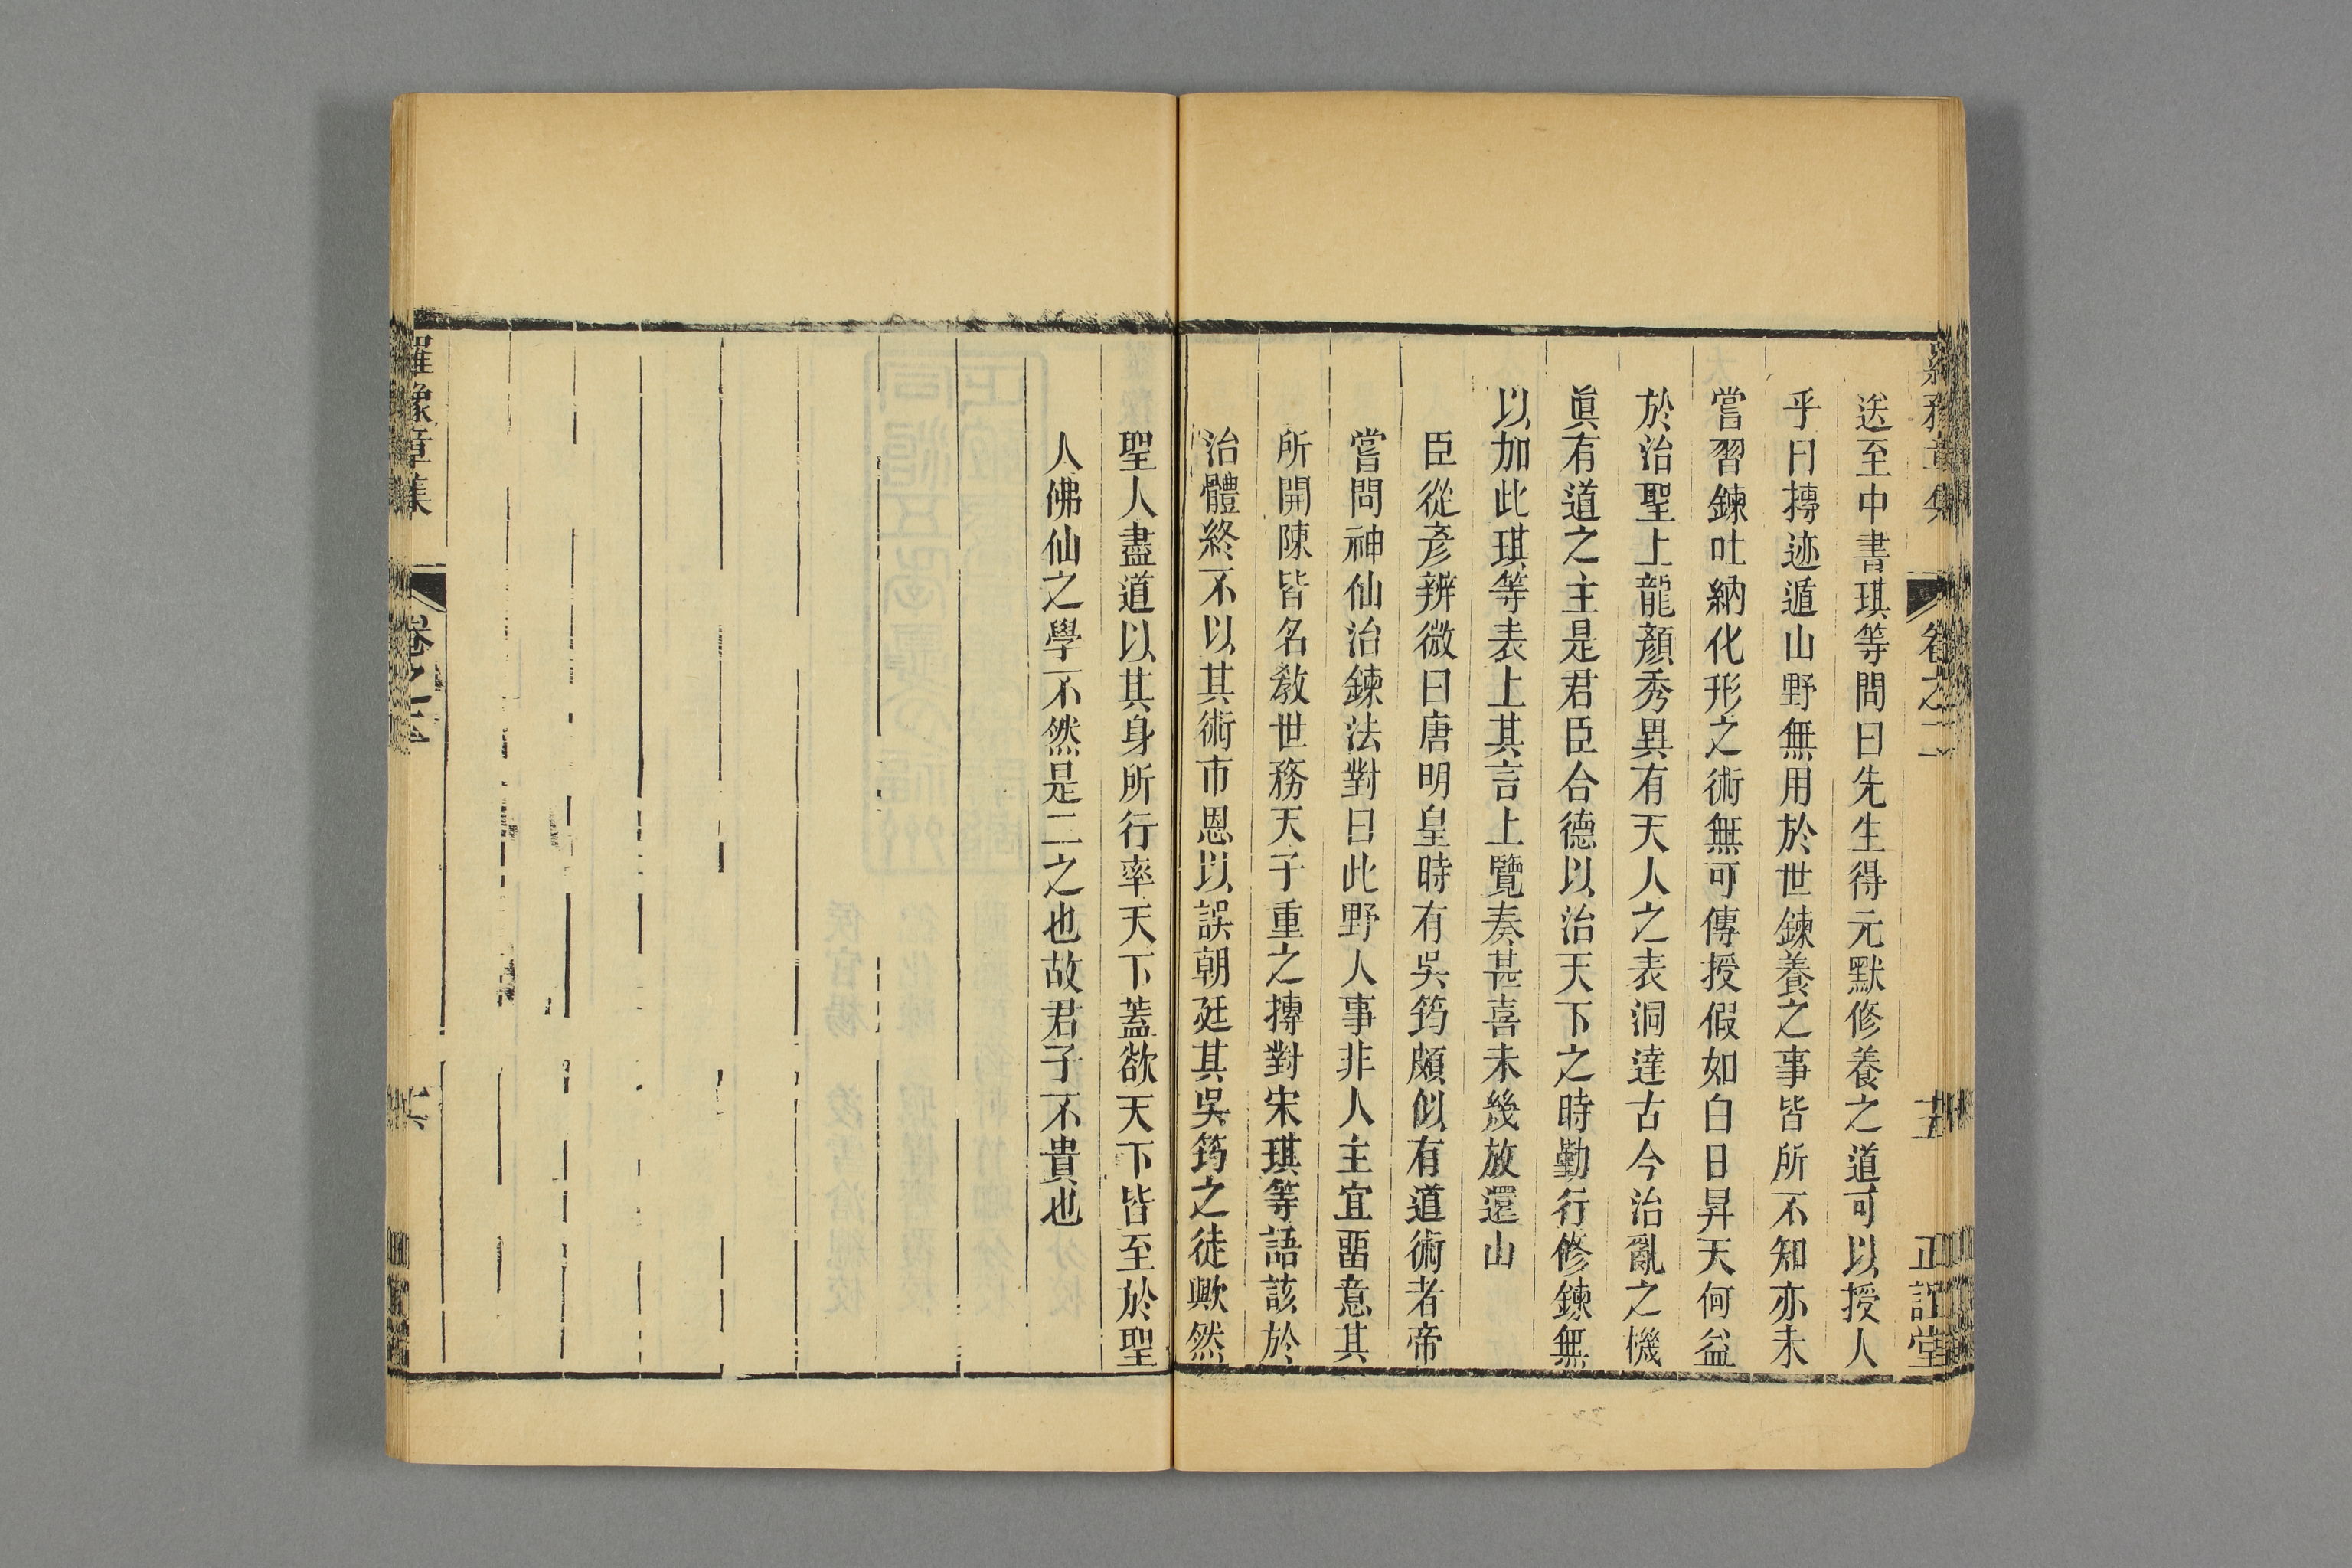 羅豫章集 卷之二 五 正誼堂
送至中書琪等問曰先生得元默修養之道可以授人
乎曰摶迹遁山野無用於世鍊養之事皆所不知亦未
嘗習鍊吐納化形之術無可傳授假如白日昇天何益
於治聖上龍顏秀異有天人之表洞達古今治亂之機
眞有道之主是君臣合德以治天下之時勤行修鍊無
以加此琪等表上其言上覽奏甚喜未幾放還山
臣從彥辨微曰唐明皇時有吳筠頗似有道術者帝
嘗問神仙治鍊法對曰此野人事非人主宜畱意其
所開陳皆名敎世務天子重之摶對宋琪等語該於
治體終不以其術市恩以誤朝廷其吳筠之徒歟然
聖人盡道以其身所行率天下蓋欲天下皆至於聖
人佛仙之學不然是二之也故君子不貴也
羅豫章集 卷之二